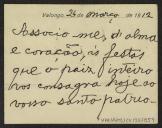 Valongo, 24 de março de 1912
Associo-me, d'alma
e coração, ás festas
que o paiz inteiro
nos consagra hoje ao
vosso santo patrio